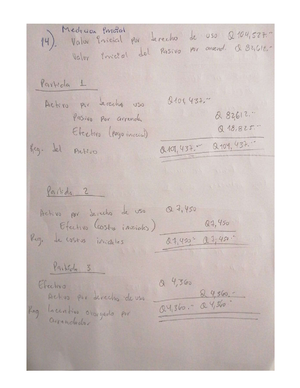 14). Medicion Inicial
Valor Inicial por derechos de uso Q 104,537.-
Valor inicial del Pasivo por arrend. Q 82,612.-
Partida 1
Activo por derechos uso Q 101,437.-
Pasivo por arrenda Q 82,612.-
Efectivo (pago inicial) Q 18,825
Reg. del Q 101,437.- Q 101,437.-
Partida 2
Activo por derechos de uso Q 7,450
Efectivo (costos iniciales) Q 7,450
Reg de costos iniciales Q 7,450- Q 7,450-
Partida 3
Efectivo Q 4,360
Activo por derechos de uso Q 4,360-
Reg Incentivo otorgado por Q 4,360.- Q 4,360-
arrendador